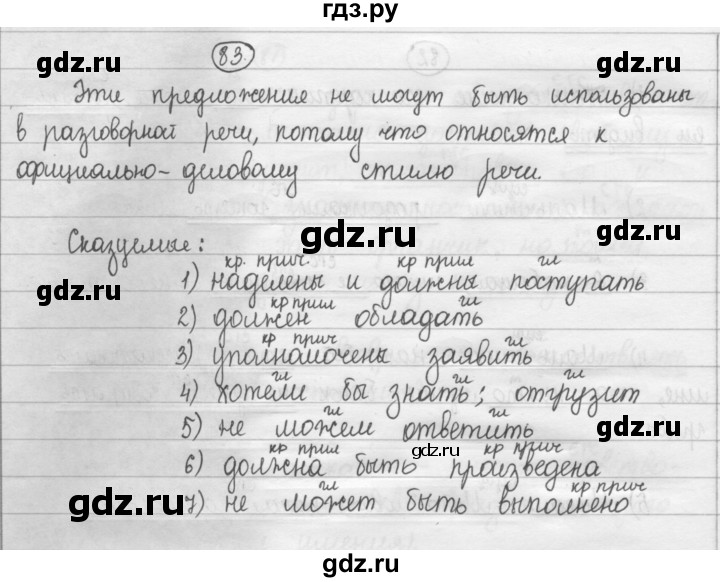 гдз.ру
83.
Эти предложения не могут быть использованы
в разговорной речи, потому что относятся к
официально-деловому стилю речи.
Сказуемые:
кр. прич. кр прил гл
1) наделены и должны поступать
кр прил гл
2) должен обладать
кр прич гл
3) уполномочены заявить
гл гл гл
4) хотели бы знать; отгрузит
гл гл
5) не можем ответить
кр прил кр прич
6) должна быть произведена
гл кр прич
7) не может быть выполнено
gdz.ru
gdz.ru
gdz.ru
gdz.ru
gdz.ru
gdz.ru
gdz.ru
gdz.ru
gdz.ru